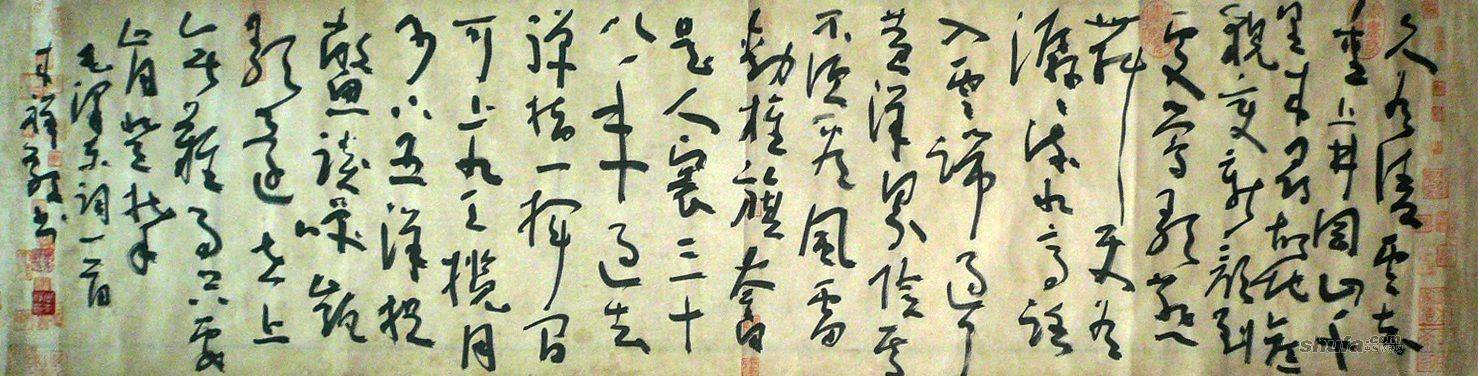 久有凌雲志
重上井岡山千
里来尋故地旧
貌变新颜到
处莺歌燕
舞更有
潺潺流水高路
入雲端過了
黄洋界险处
不须看風雷
動旌旗奮
是人寰三十
八年過去
弹指一挥间
可上九天揽月
可下五洋捉
鳖谈笑凯
歌还世上
无難事只要
肯登攀
毛泽东词一首
书
shufa.com